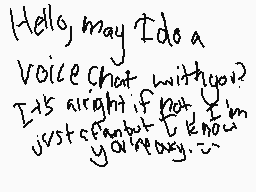 Hello, may I do a
voice chat with you?
It's alright if not, I'm
just a fan but I know
you're busy. :-